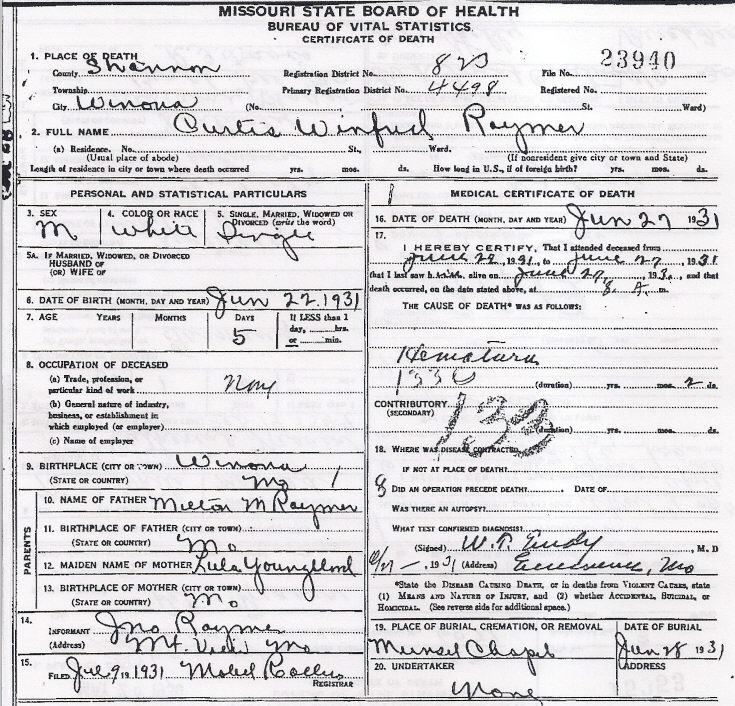 MISSOURI STATE BOARD OF HEALTH
BUREAU OF VITAL STATISTICS
CERTIFICATE OF DEATH
1. PLACE OF DEATH
County Shannon Registration District No. 820 File No. 23940
Township Primary Registration District No. 4498 Registered No.
City Winona (No. St. Ward)
2. FULL NAME Curtis Winfred Raymer
(a) Residence. No. St., Ward.
(Usual place of abode) (If nonresident give city or town and State)
Length of residence in city or town where death occurred yrs. mos. ds. How long in U.S., if of foreign birth? yrs. mos. ds.
PERSONAL AND STATISTICAL PARTICULARS
3. SEX 4. COLOR OR RACE 5. SINGLE, MARRIED, WIDOWED OR
DIVORCED (write the word)
M White Single
5A. IF MARRIED, WIDOWED, OR DIVORCED
HUSBAND OF
(OR) WIFE OF
6. DATE OF BIRTH (MONTH, DAY AND YEAR) Jun 22. 1931
7. AGE YEARS MONTHS DAYS If LESS than 1
day, hrs.
5 or min.
8. OCCUPATION OF DECEASED
(a) Trade, profession, or
particular kind of work
(b) General nature of industry,
business, or establishment in
which employed (or employer)
(c) Name of employer
9. BIRTHPLACE (CITY OR TOWN) Winona
(STATE OR COUNTRY) Mo
PARENTS
10. NAME OF FATHER Milton M Raymer
11. BIRTHPLACE OF FATHER (CITY OR TOWN)
(STATE OR COUNTRY) Mo
12. MAIDEN NAME OF MOTHER Lula Youngblood
13. BIRTHPLACE OF MOTHER (CITY OR TOWN)
(STATE OR COUNTRY) Mo
14.
INFORMANT Jno Raymer
(Address) Mt. View Mo
15.
FILED Jul 9 1931 Mabel
REGISTRAR
MEDICAL CERTIFICATE OF DEATH
16. DATE OF DEATH (MONTH, DAY AND YEAR) Jun 27 1931
17.
I HEREBY CERTIFY, That I attended deceased from
June 22, 1931, to June 27, 1931
that I last saw h alive on June 27, 193 , and that
death occurred, on the date stated above, at 8. A. m.
THE CAUSE OF DEATH* WAS AS FOLLOWS:
Hematuria
(duration) yrs. mos. 2 ds.
CONTRIBUTORY
(SECONDARY)
133
(duration) yrs. mos. ds.
18. WHERE WAS DISEASE CONTRACTED
IF NOT AT PLACE OF DEATH?
DID AN OPERATION PRECEDE DEATH? DATE OF
WAS THERE AN AUTOPSY?
WHAT TEST CONFIRMED DIAGNOSIS?
(Signed) W.T. Eudy, M. D
6/27 , 1931 (Address) Eminence, Mo
*State the DISEASE CAUSING DEATH, or in deaths from VIOLENT CAUSES, state
(1) MEANS AND NATURE OF INJURY, and (2) whether ACCIDENTAL, SUICIDAL, or
HOMICIDAL. (See reverse side for additional space.)
19. PLACE OF BURIAL, CREMATION, OR REMOVAL DATE OF BURIAL
Munsel Chapel Jun 28 1931
20. UNDERTAKER ADDRESS
None